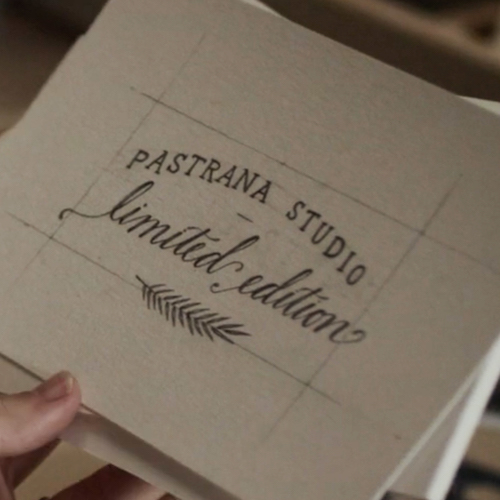 PASTRANA STUDIO
limited edition